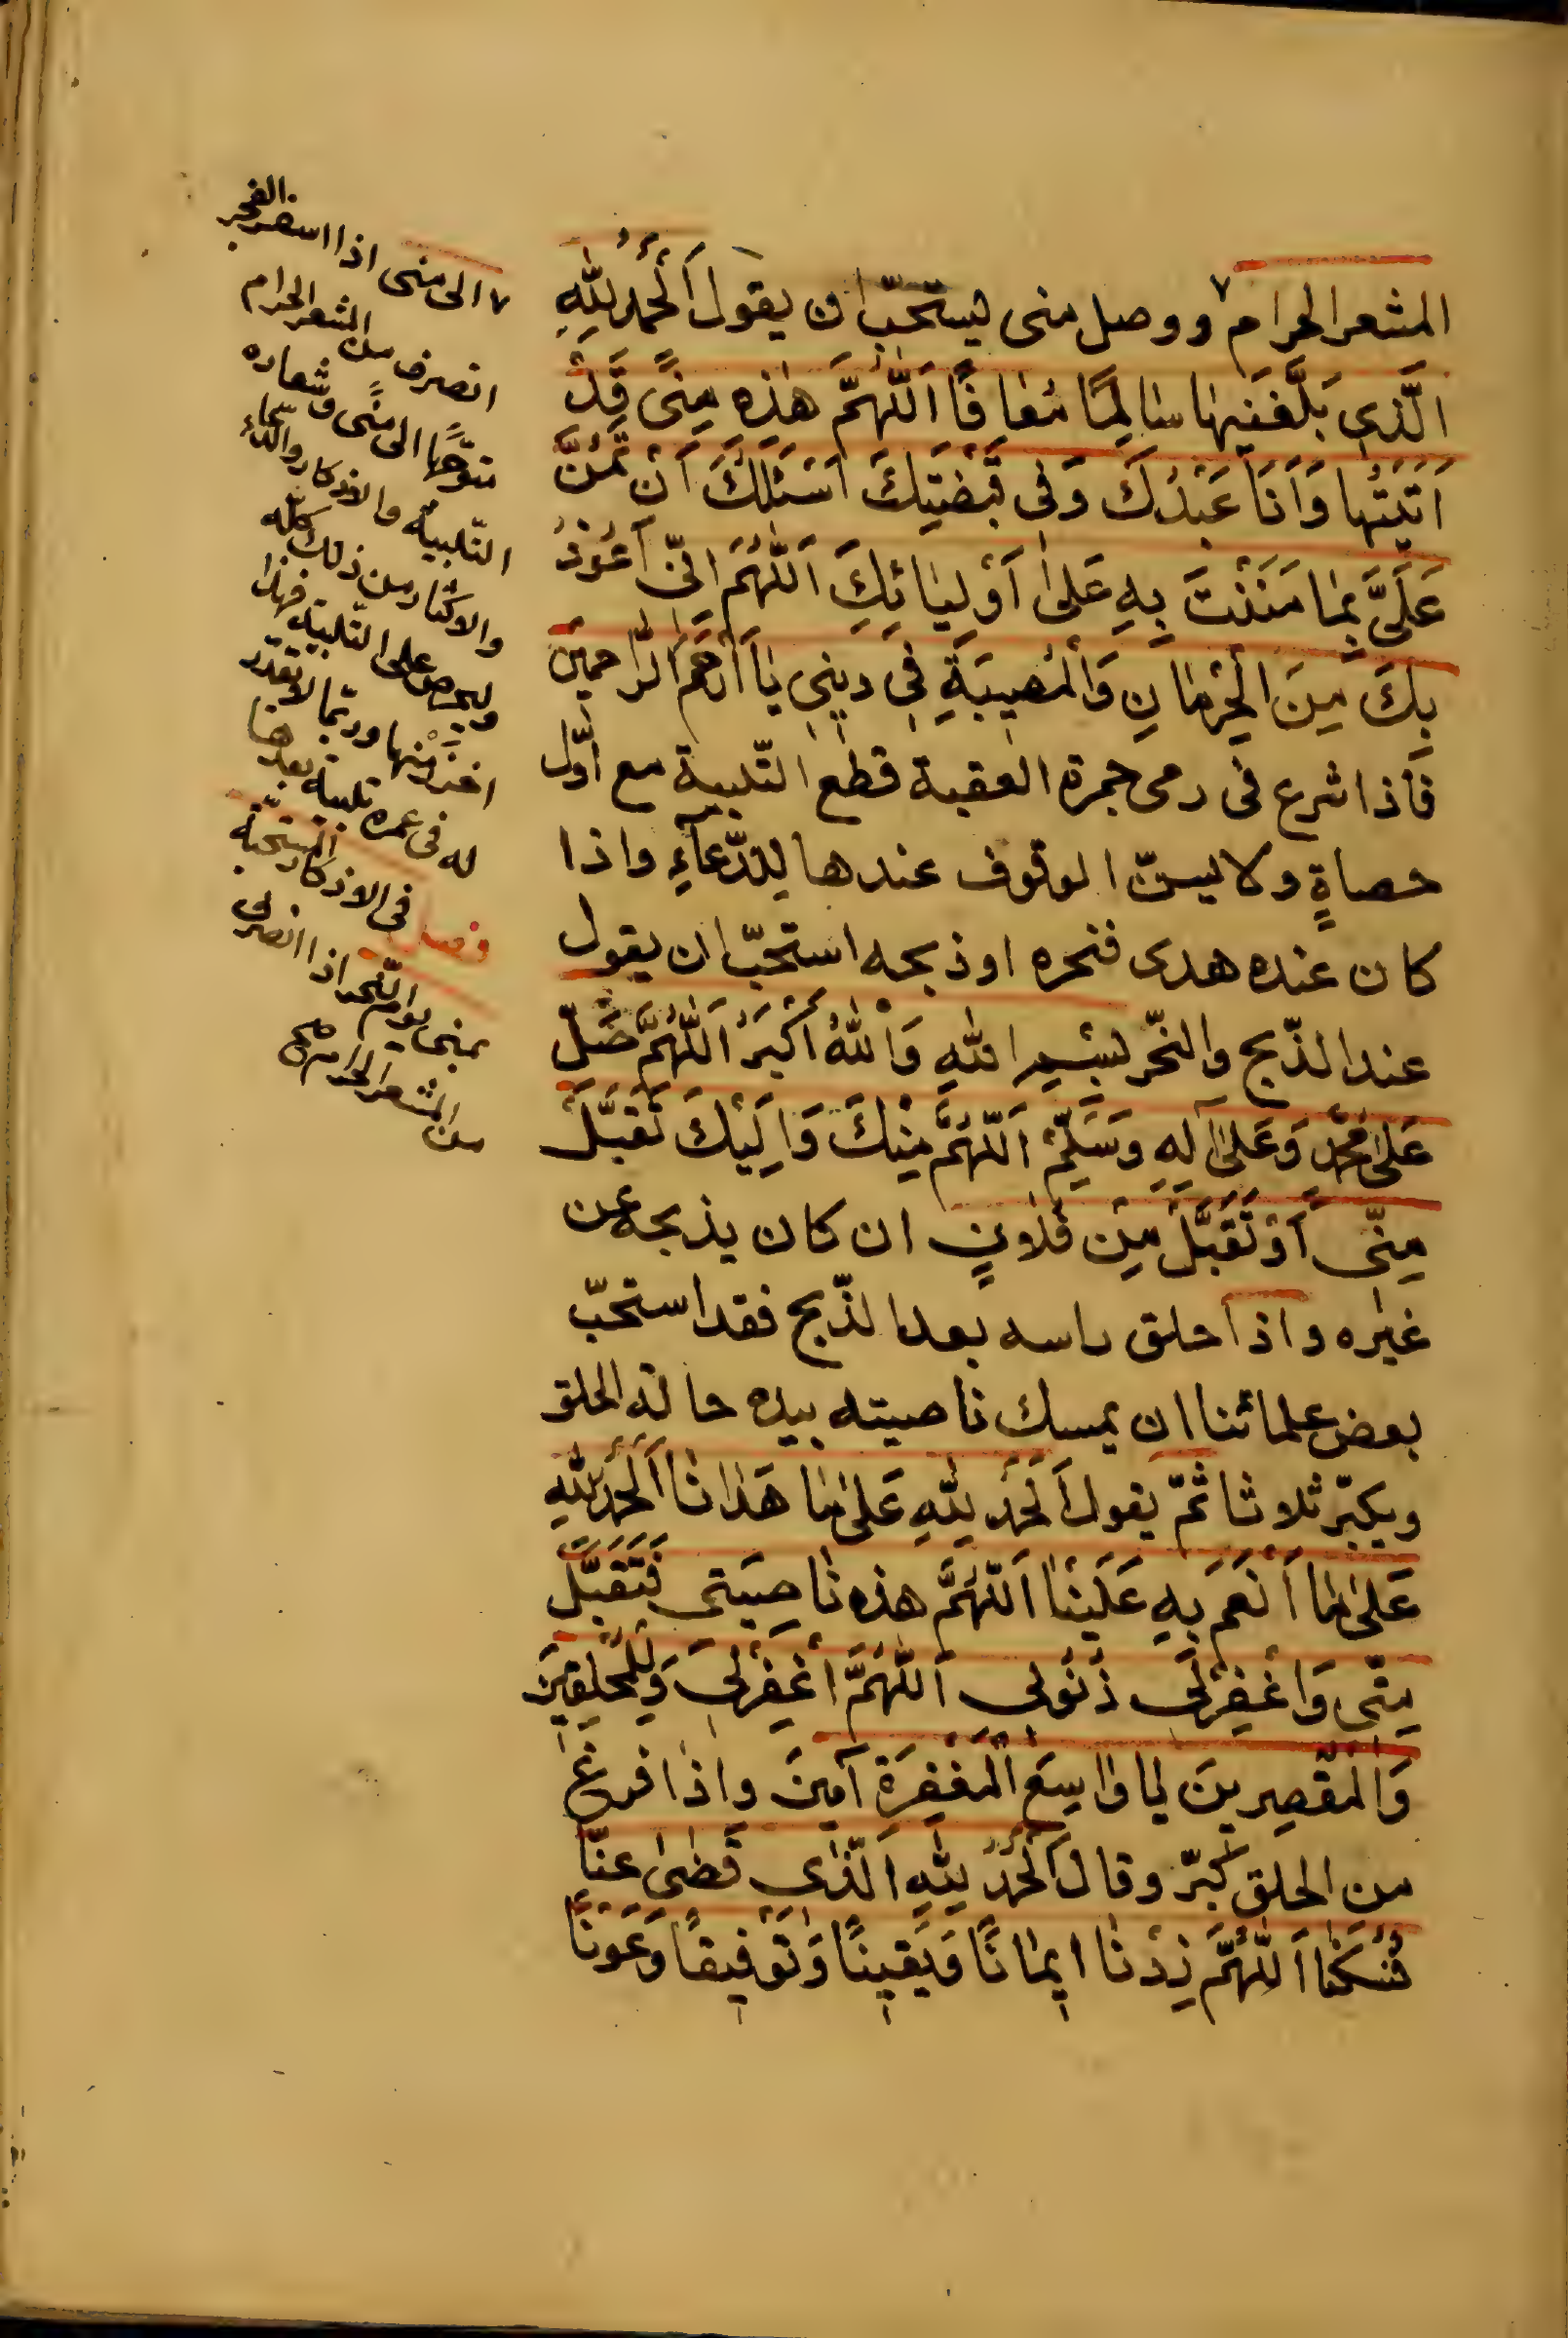 المشعر الحرام ٧ ووصل منى يستحبّ ان يقول اَلْحَمْدُ لِلّٰهِ
الَّذِي بَلَّغَنِيهٰا سٰالِمًا مُعٰافًا اَللّٰهُمَّ هٰذِهِ مِنًى قَدْ
اَتَيْتُهٰا وَاَنَا عَبْدُكَ وَفِي قَبْضَتِكَ اَسْئَلُكَ اَنْ تَمُنَّ
عَلَيَّ بِمٰا مَنَنْتَ بِهِ عَلىٰ اَوْلِيٰائِكَ اَللّٰهُمَّ اِنّي اَعُوذُ
بِكَ مِنَ الْحِرْمٰانِ وَالْمُصِيبَةِ فِي دِينِي يٰا اَرْحَمَ الرّٰاحِمِينَ
فاذا شرع فى رمى جمرة العقبة قطع التّلبية مع اوّل
حصاةٍ ولا يسنّ الوقوف عندها للدّعآءِ واذا
كان عنده هدى فنحره او ذبحه استحبّ ان يقول
عند الذّبح والنّحر بِسْمِ اللّٰهِ وَاللّٰهُ اَكْبَرُ اَللّٰهُمَّ صَلِّ
عَلىٰ مُحَمَّدٍ وَعَلىٰ آلِهِ وَسَلِّمْ اَللّٰهُمَّ مِنْكَ وَاِلَيْكَ تَقَبَّلْ
مِنّى اَوْ تَقَبَّلْ مِنْ فُلانٍ ان كان يذبحه عن
غيره واذا حلق راسه بعد الذّبح فقد استحبّ
بعض علمائنا ان يمسك ناصيته بيده حالة الحلق
ويكبّر ثلاثا ثمّ يقول اَلْحَمْدُ لِلّٰهِ عَلىٰ مٰا هَدٰانٰا اَلْحَمْدُ لِلّٰهِ
عَلىٰ مٰا اَنْعَمَ بِهِ عَلَيْنٰا اَللّٰهُمَّ هذه نٰاصِيَتى فَتَقَبَّلْ
مِنّى وَاغْفِرْلى ذُنُوبى اَللّٰهُمَّ اغْفِرْلِي وَلِلْمُحَلِّقِينَ
وَالْمُقَصِّرِينَ يٰا وٰاسِعَ الْمَغْفِرَةِ آمِينَ واذا فرغ
من الحلق كبّر وقال اَلْحَمْدُ لِلّٰهِ الَّذِي قَضىٰ عَنّٰا
نُسُكَنٰا اَللّٰهُمَّ زِدْنٰا ايمٰانًا وَيَقِينًا وَتَوْفِيقًا وَعَوْنًا
٧ الى منى اذا اسفر الفجر
انصرف من المشعر الحرام
متوجّهًا الى منًى وشعاره
التّلبية والاذكار والدّعاء
والاكثار من ذلك كلّه
وليحرص على التّلبية فهذا
اخر زمنها وربّما لا يقدّر
له فى عمره تلبية بعدها
فصل فى الاذكار المستحبّة
بمنى يوم النّحر اذا انصرف
من المشعر الحرام صح